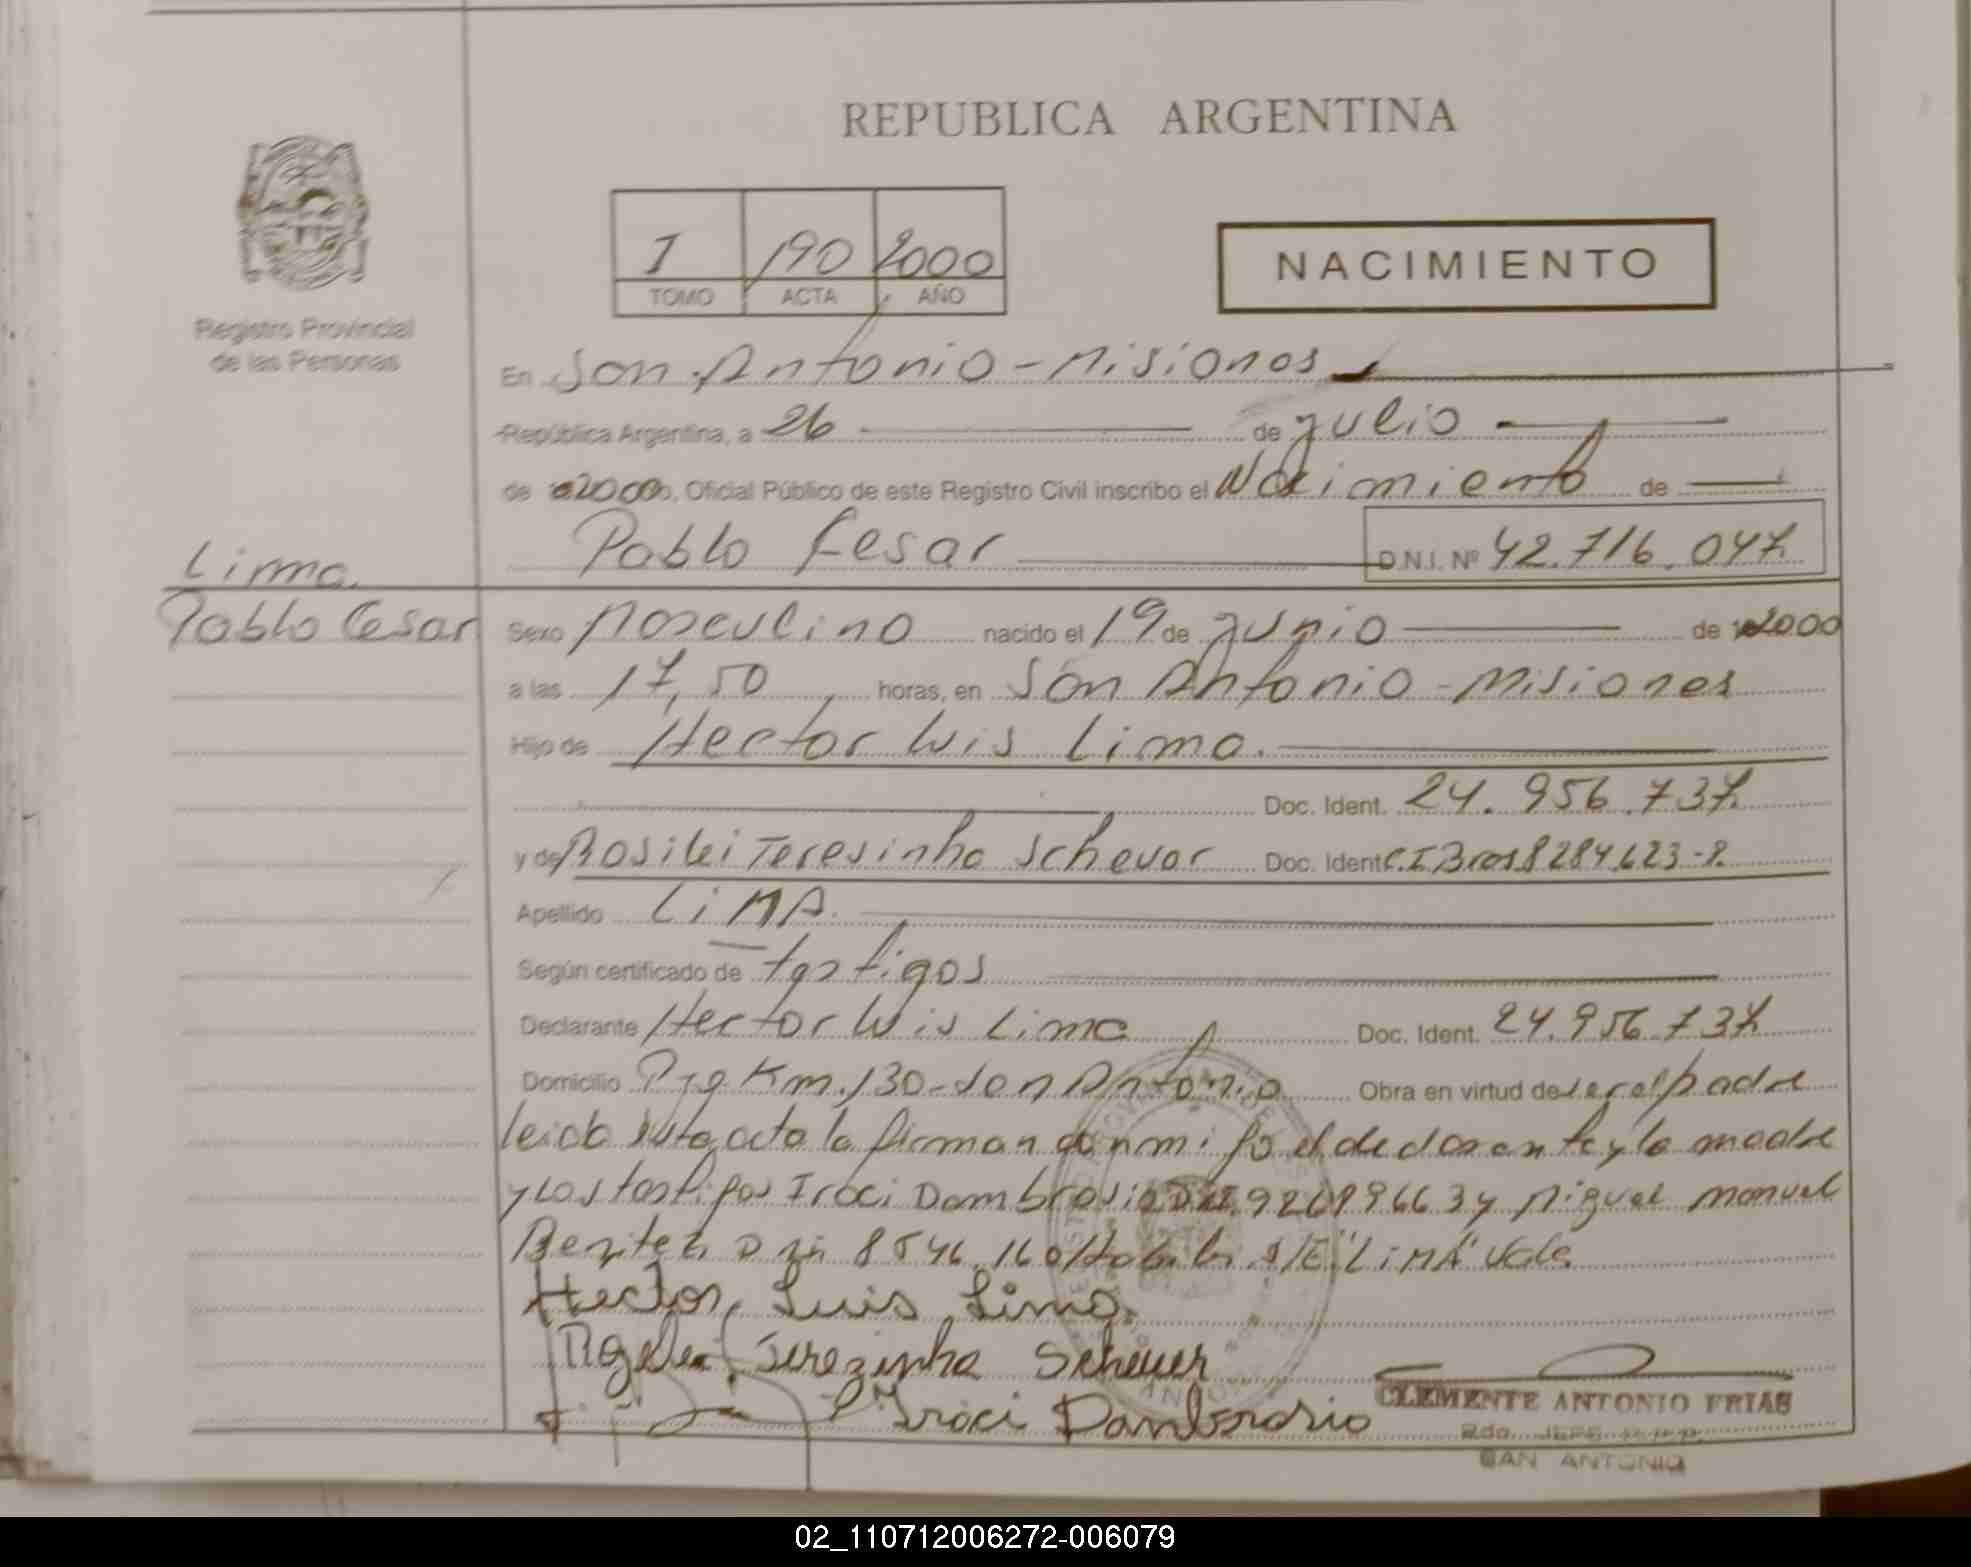 REPUBLICA ARGENTINA
I 190 2000
TOMO ACTA AÑO
NACIMIENTO
Registro Provincial
de las Personas
En San Antonio - Misiones
República Argentina, a 26 de Julio
de 2000, Oficial Público de este Registro Civil inscribo el Nacimiento de
Pablo Cesar D.N.I. Nº 42.716.047
Lima
Pablo Cesar
Sexo Masculino nacido el 19 de Junio de 2000
a las 17,50 horas, en San Antonio - Misiones
Hijo de Hector Luis Lima.
Doc. Ident. 24.956.737
y de Rosilei Teresinha Schevar Doc. Ident C.I Bras 8284.623-8.
Apellido LIMA
Según certificado de testigos
Declarante Hector Luis Lima Doc. Ident. 24.956.737
Domicilio Pje Km.130-San Antonio Obra en virtud de ser el padre
leida esta acta la firman con mi el declarante y la madre
y los testigos Iraci Dambrosio 92689663 y Miguel Manuel
Benitez DNI 8546.160 S/E "LIMA" Vale
Hector, Luis Lima.
Terezinha Scheuer
Iraci Dambrosio
CLEMENTE ANTONIO FRIAS
2do. JEFE
SAN ANTONIO
02_110712006272-006079